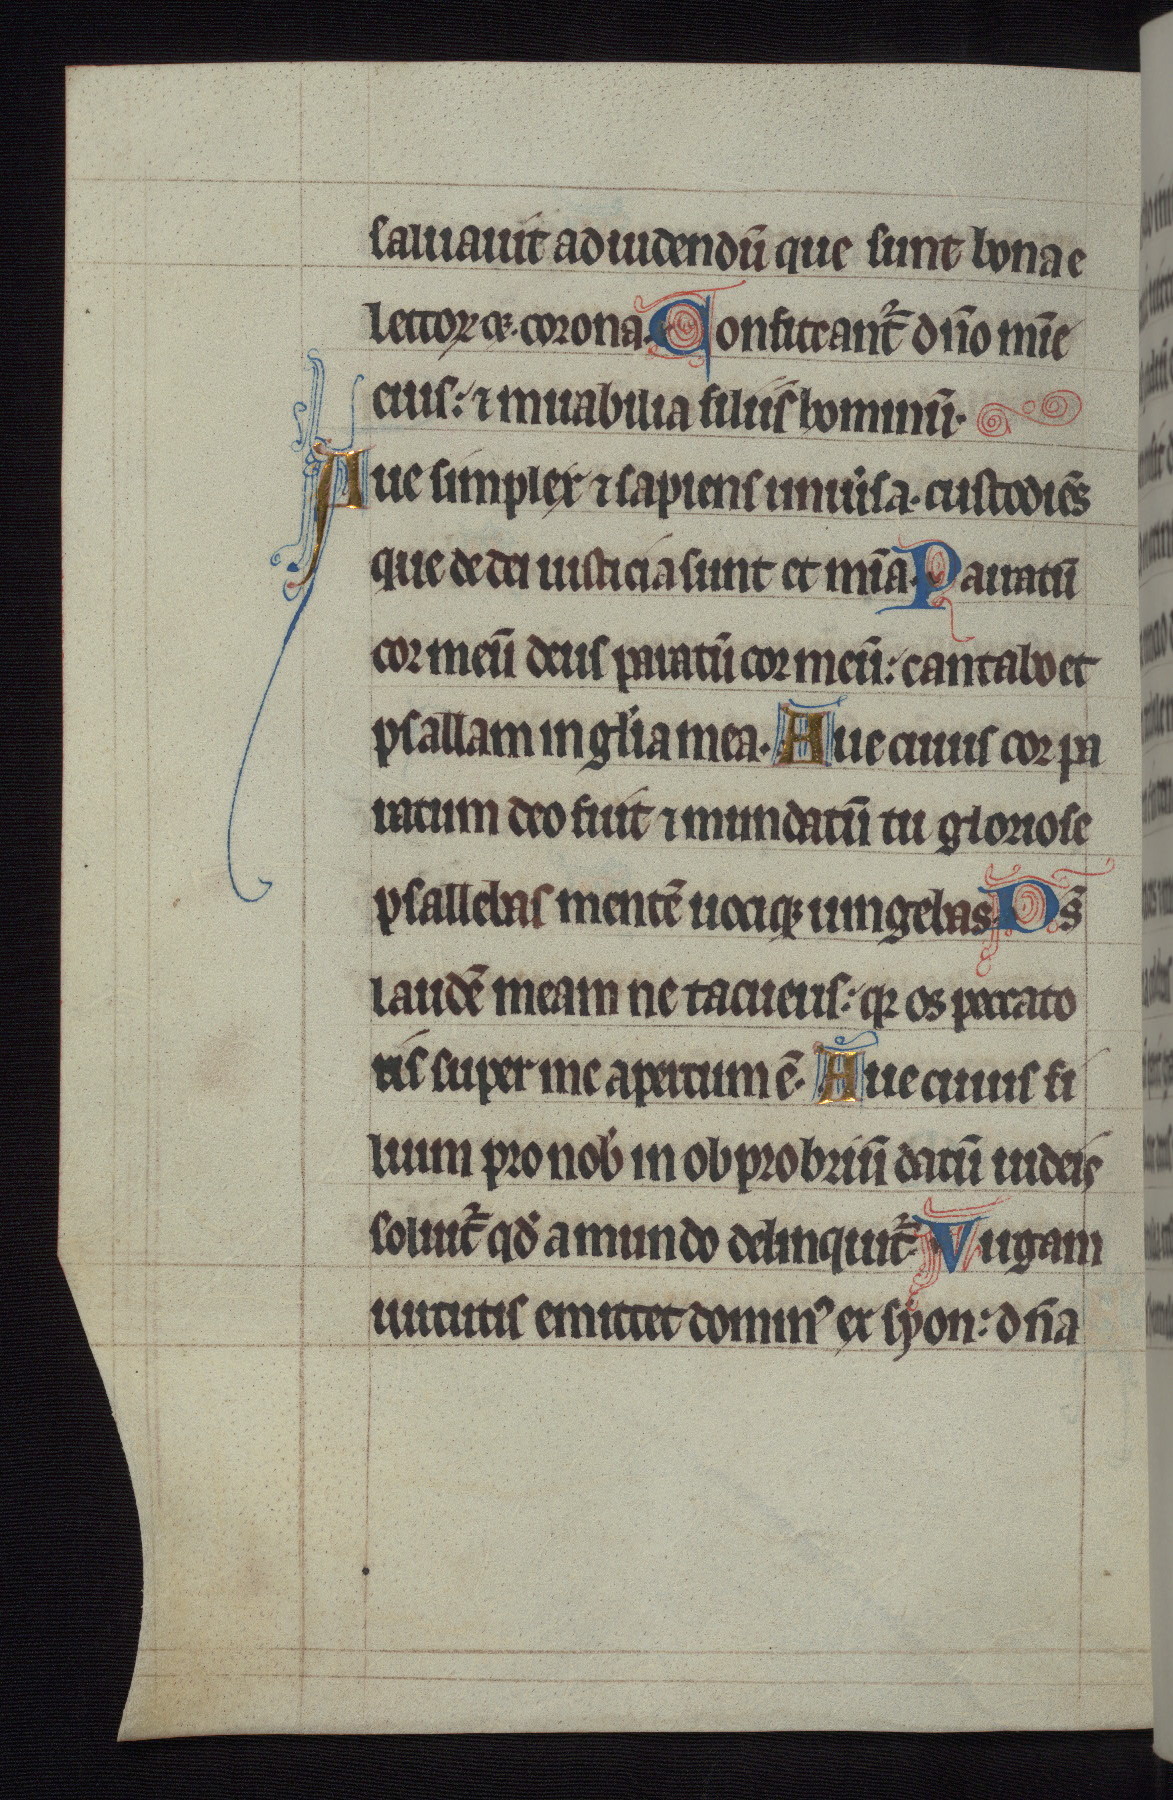 saluauit ad uidendū que sunt bona e
lectorꝝ ꝫ corona. Confiteant᷑ dn̄o mīe
eius: ⁊ mirabilia filiis hominū.
Aue simplex ⁊ sapiens uniu̾sa. custodiēs
que de dei iusticia sunt et mīa. Paratū
cor meū deus paratū cor meū: cantabo et
psallam in gl̄ia mea. Aue cuius cor pa
ratum deo fuit ⁊ mundatū tu gloriose
psallebas mentē uociqꝫ iungebas. Ds̄
laudē meam ne tacueris: qꝛ os peccato
ris super me apertum ē. Aue cuius fi
lium pro nob̄ in obprobriū datū iudeis
soluit᷑ qd̄ a mundo delinquit᷑. Virgam
uirtutis emittet dominꝰ ex syon: dn̄a